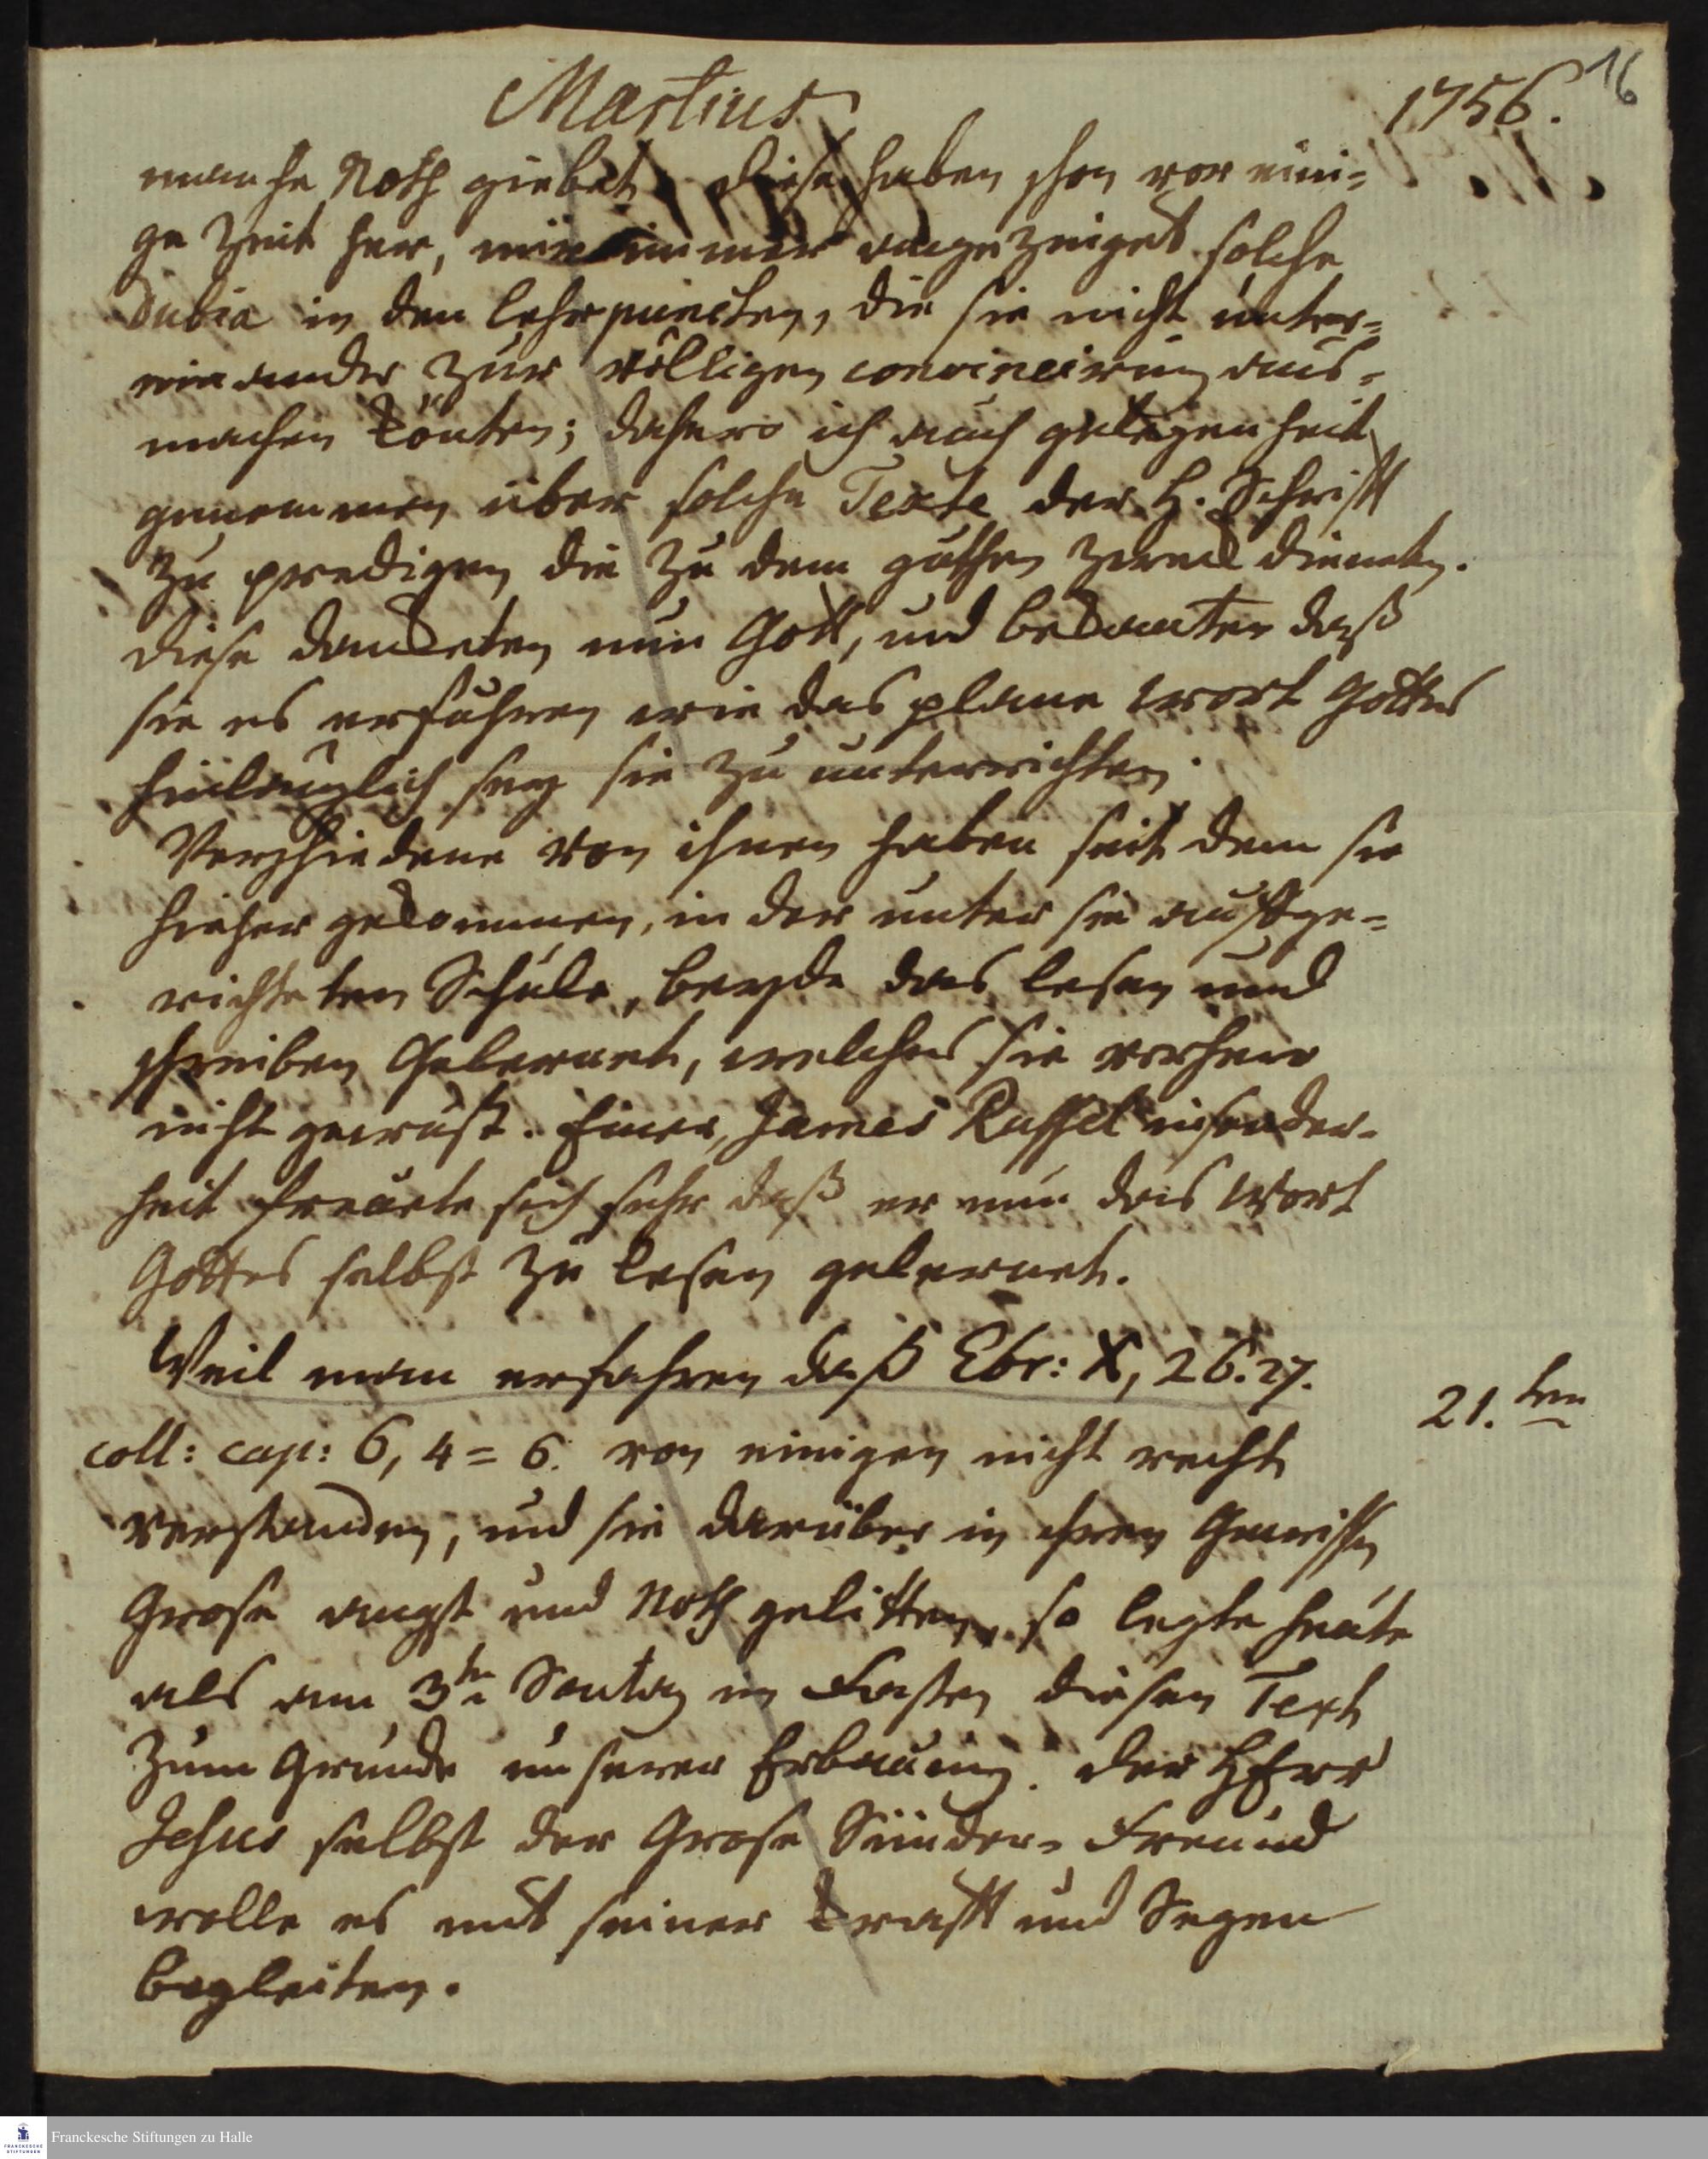 Martius
1756.
16
manche Noth giebet. Diese haben schon vor eini=
ge Zeit her, mir immer angezeiget solche
Dubia in den Lehrpuncten, die sie nicht unter=
einander zur völligen convincirung aus=
machen könten; dahero ich auch gelegenheit
genommen über solche Texte der H. Schrifft
zu predigen die zu dem guthen Zweck dienete.
Diese danketen nun Gott, und bekanten daß
sie es erfuhren wie das plane Wort Gottes
hinlänglich sey sie zu unterrichten.
Verschiedene von ihnen haben seit dem sie
hieher gekommen, in der unter sie auffge=
richteten Schule, beyde das lesen und
schreiben Gelernet, welches sie vorhero
nicht gewust. Einer, James Russel insonder=
heit freuete sich sehr daß er nun das Wort
Gottes selbst zu lesen gelernet.
Weil man erfahren daß Ebr: X, 26. 27.
21. ten
coll: cap: 6, 4=6. von einigen nicht recht
verstanden, und sie darüber in ihren Gewissen
Grose angst und Noth gelitten, so legte heute
als am 3ten Sontag in Fasten diesen Text
zum Grunde unserer Erbauung. Der HErr
Jesus selbst der Grose Sünder=Freund
wolle es mit seiner Krafft und Segen
begleiten.
Franckesche Stiftungen zu Halle
FRANCKESCHE
STIFTUNGEN